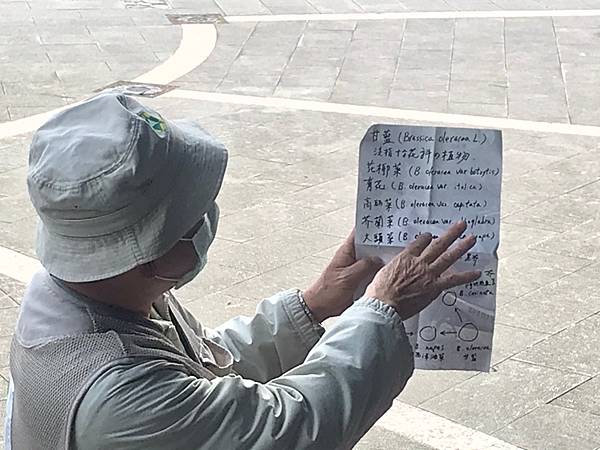 甘藍 (Brassica oleracea L.)
泛指十字花科の植物
花椰菜 (B. oleracea var. botrytis)
青花 (B. oleracea var. italica)
高麗菜 (B. oleracea var. capitata)
芥蘭菜 (B. oleracea var.
大頭菜 (B. oleracea
B. carinata
B. napus
B. oleracea
甘藍